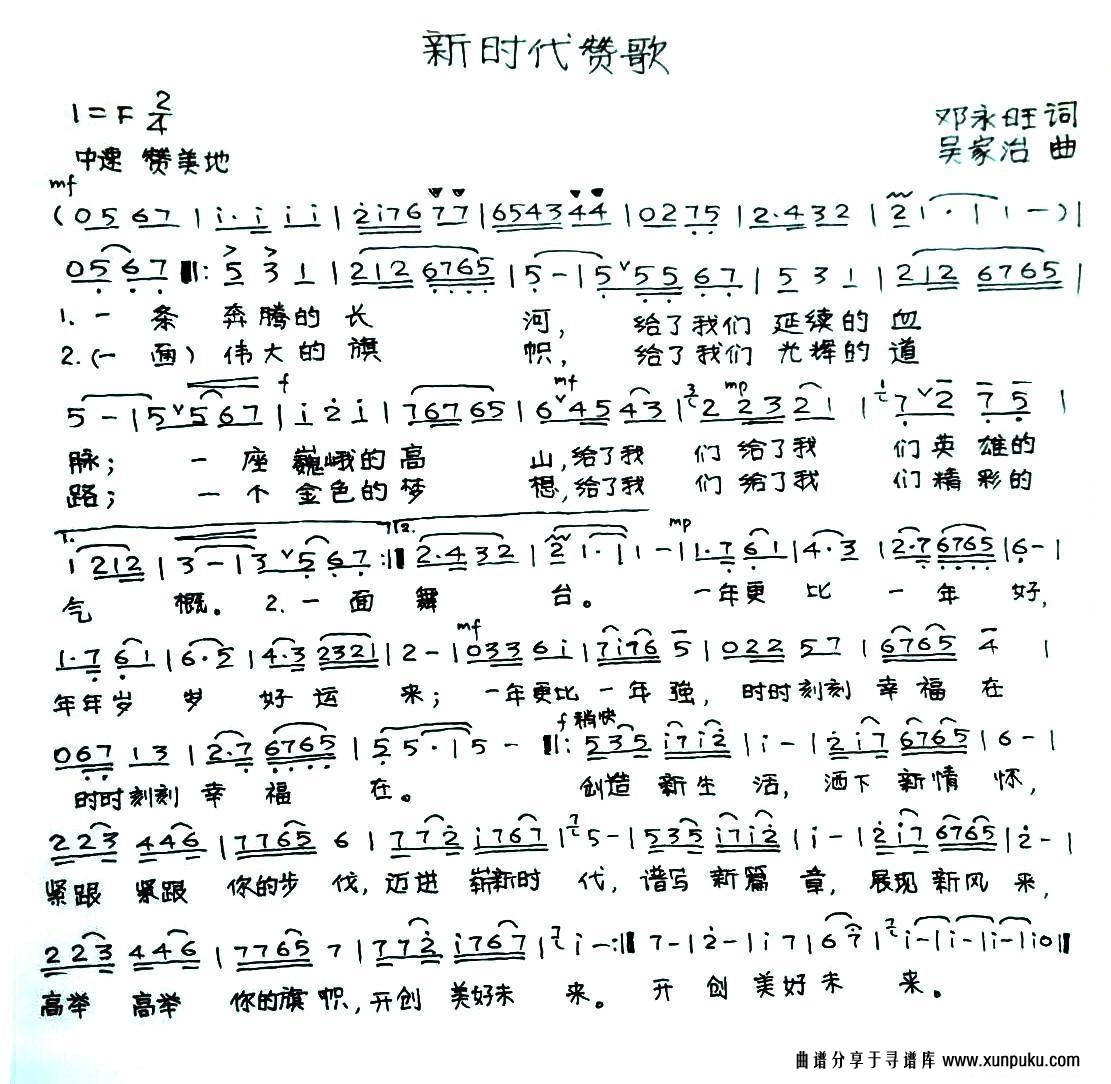 新时代赞歌
1=F 2/4
邓永旺 词
中速 赞美地
吴家治 曲
mf
(05 67 | i·i i i | 2i76 77 | 6543 44 | 0275 | 2·432 | 2 1·| 1 - ) |
05 67 ‖: 5 3 1 | 212 6765 | 5 - | 5 ∨ 55 67 | 5 3 1 | 212 6765 |
1. 一 条 奔腾的 长 河, 给了我们 延续的 血
2.(一 面) 伟大的 旗 帜, 给了我们 光辉的 道
f mf mp
5 - | 5 ∨ 567 | i 2 i | 76765 | 6 ∨ 45 43 | 2 23 21 | 7 ∨ 2 7 5 |
脉; 一 座 巍峨的 高 山, 给了我 们 给了我 们 英雄的
路; 一 个 金色的 梦 想, 给了我 们 给了我 们 精彩的
1. 2. mp
1 212 | 3 - | 3 ∨ 567 :‖ 2·432 | 2 1·| 1 - | 1·7 61 | 4·3 | 2·7 6765 | 6 - |
气 概。 2. 一 面 舞 台。 一年更 比 一 年 好,
mf
1·7 61 | 6·5 | 4·3 2321 | 2 - | 033 6i | 7i76 5 | 022 57 | 6765 4 |
年年岁 岁 好 运 来; 一年更比 一 年 强, 时时刻刻 幸 福 在
f 稍快
067 13 | 2·7 6765 | 5 5·| 5 - ‖: 535 i7i2 | i - | 2i7 6765 | 6 - |
时时刻刻 幸 福 在。 创造 新生 活, 洒下 新情 怀,
223 446 | 7765 6 | 772 i767 | 5 - | 535 i7i2 | i - | 2i7 6765 | 2 - |
紧跟 紧跟 你的步 伐, 迈进 崭新时 代, 谱写 新篇 章, 展现 新风 来,
223 446 | 7765 7 | 772 i767 | i - :‖ 7 - | 2 - | i 7 | 6 7 | i - | i - | i - | i 0 ‖
高举 高举 你的旗 帜, 开创 美好未 来。 开 创 美 好 未 来。
曲谱分享于寻谱库 www.xunpuku.com